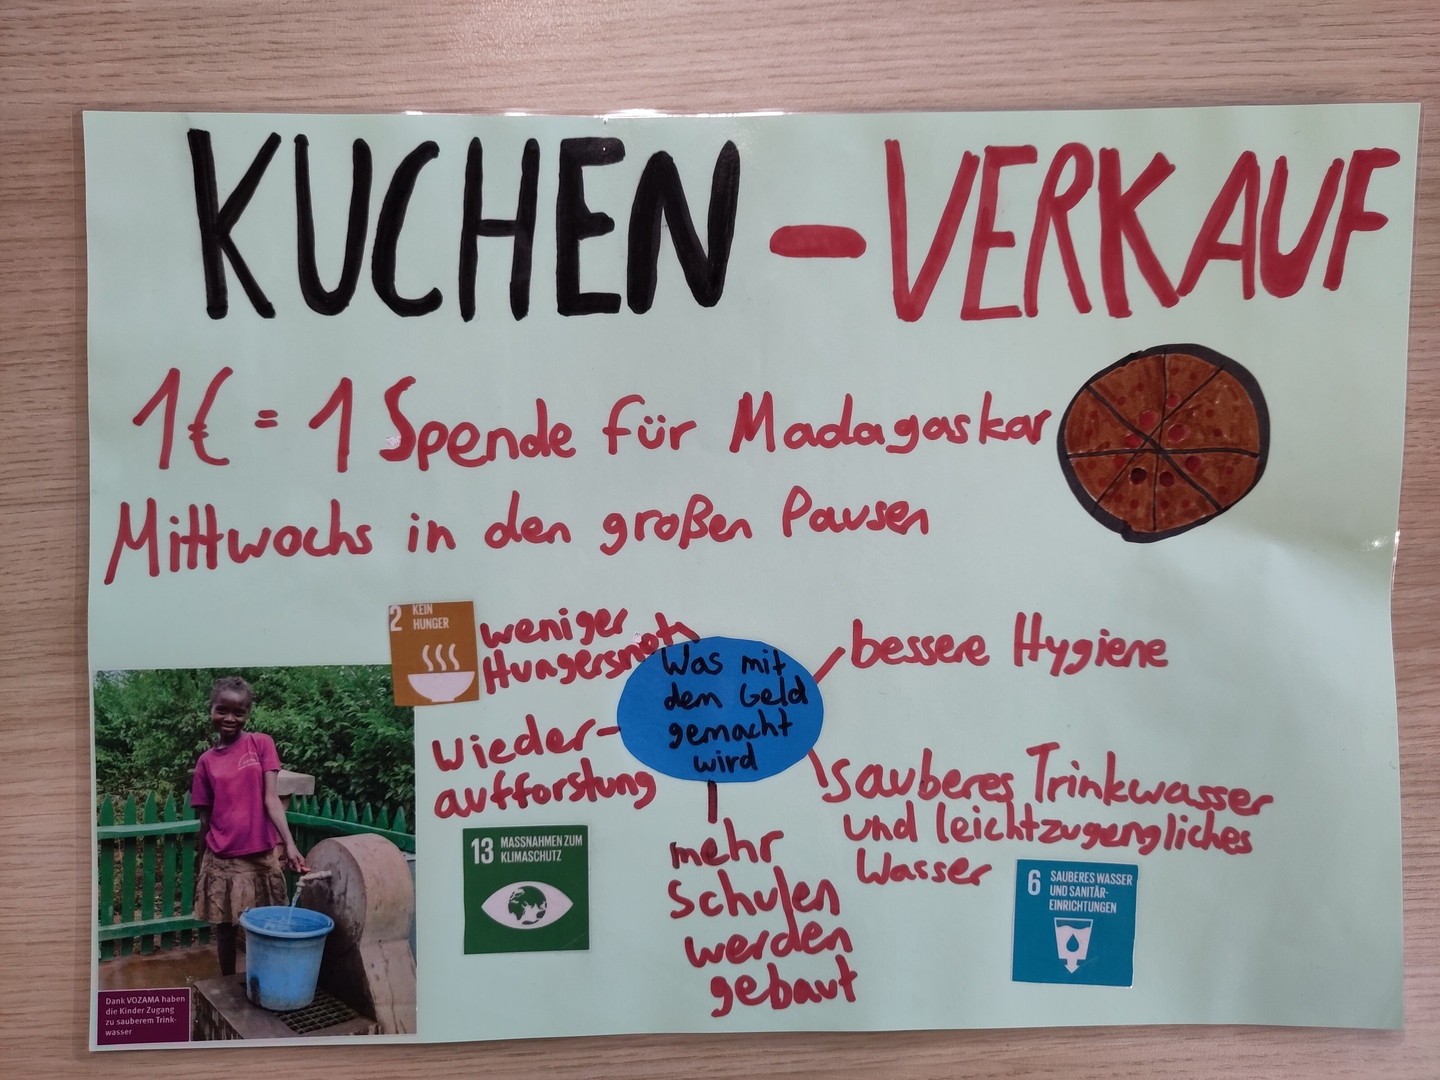 KUCHEN-VERKAUF
1€ = 1 Spende für Madagaskar
Mittwochs in den großen Pausen
2 KEIN
HUNGER
weniger
Hungersnot
Was mit
dem Geld
gemacht
wird
bessere Hygiene
Wieder-
aufforstung
sauberes Trinkwasser
und leichtzugengliches
Wasser
13 MASSNAHMEN ZUM
KLIMASCHUTZ
mehr
Schulen
werden
gebaut
6 SAUBERES WASSER
UND SANITÄR-
EINRICHTUNGEN
Dank VOZAMA haben
die Kinder Zugang
zu sauberem Trink-
wasser